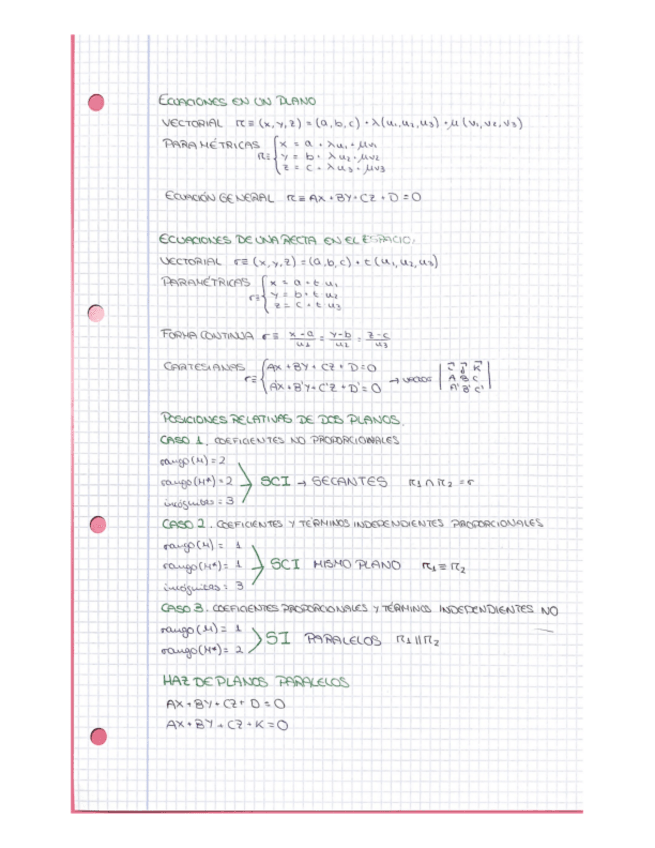 ECUACIONES EN UN PLANO
VECTORIAL π ≡ (x, y, z) = (a, b, c) + λ(u₁, u₂, u₃) + μ(v₁, v₂, v₃)
PARAMÉTRICAS π ≡ { x = a + λu₁ + μv₁
y = b + λu₂ + μv₂
z = c + λu₃ + μv₃
ECUACIÓN GENERAL π ≡ AX + BY + CZ + D = 0
ECUACIONES DE UNA RECTA EN EL ESPACIO.
VECTORIAL r ≡ (x, y, z) = (a, b, c) + t(u₁, u₂, u₃)
PARAMÉTRICAS r ≡ { x = a + t u₁
y = b + t u₂
z = c + t u₃
FORMA CONTINUA r ≡ (x-a)/u₁ = (y-b)/u₂ = (z-c)/u₃
CARTESIANAS r ≡ { AX + BY + CZ + D = 0
A'X + B'Y + C'Z + D' = 0 → | i j k |
| A B C |
| A' B' C' |
POSICIONES RELATIVAS DE DOS PLANOS.
CASO 1. COEFICIENTES NO PROPORCIONALES
rango(M) = 2
rango(M*) = 2 SCI → SECANTES π₁ ∩ π₂ = r
incógnitas = 3
CASO 2. COEFICIENTES Y TÉRMINOS INDEPENDIENTES PROPORCIONALES
rango(M) = 1
rango(M*) = 1 SCI MISMO PLANO π₁ ≡ π₂
incógnitas = 3
CASO 3. COEFICIENTES PROPORCIONALES Y TÉRMINOS INDEPENDIENTES NO
rango(M) = 1
rango(M*) = 2 SI PARALELOS π₁ || π₂
HAZ DE PLANOS PARALELOS
AX + BY + CZ + D = 0
AX + BY + CZ + K = 0